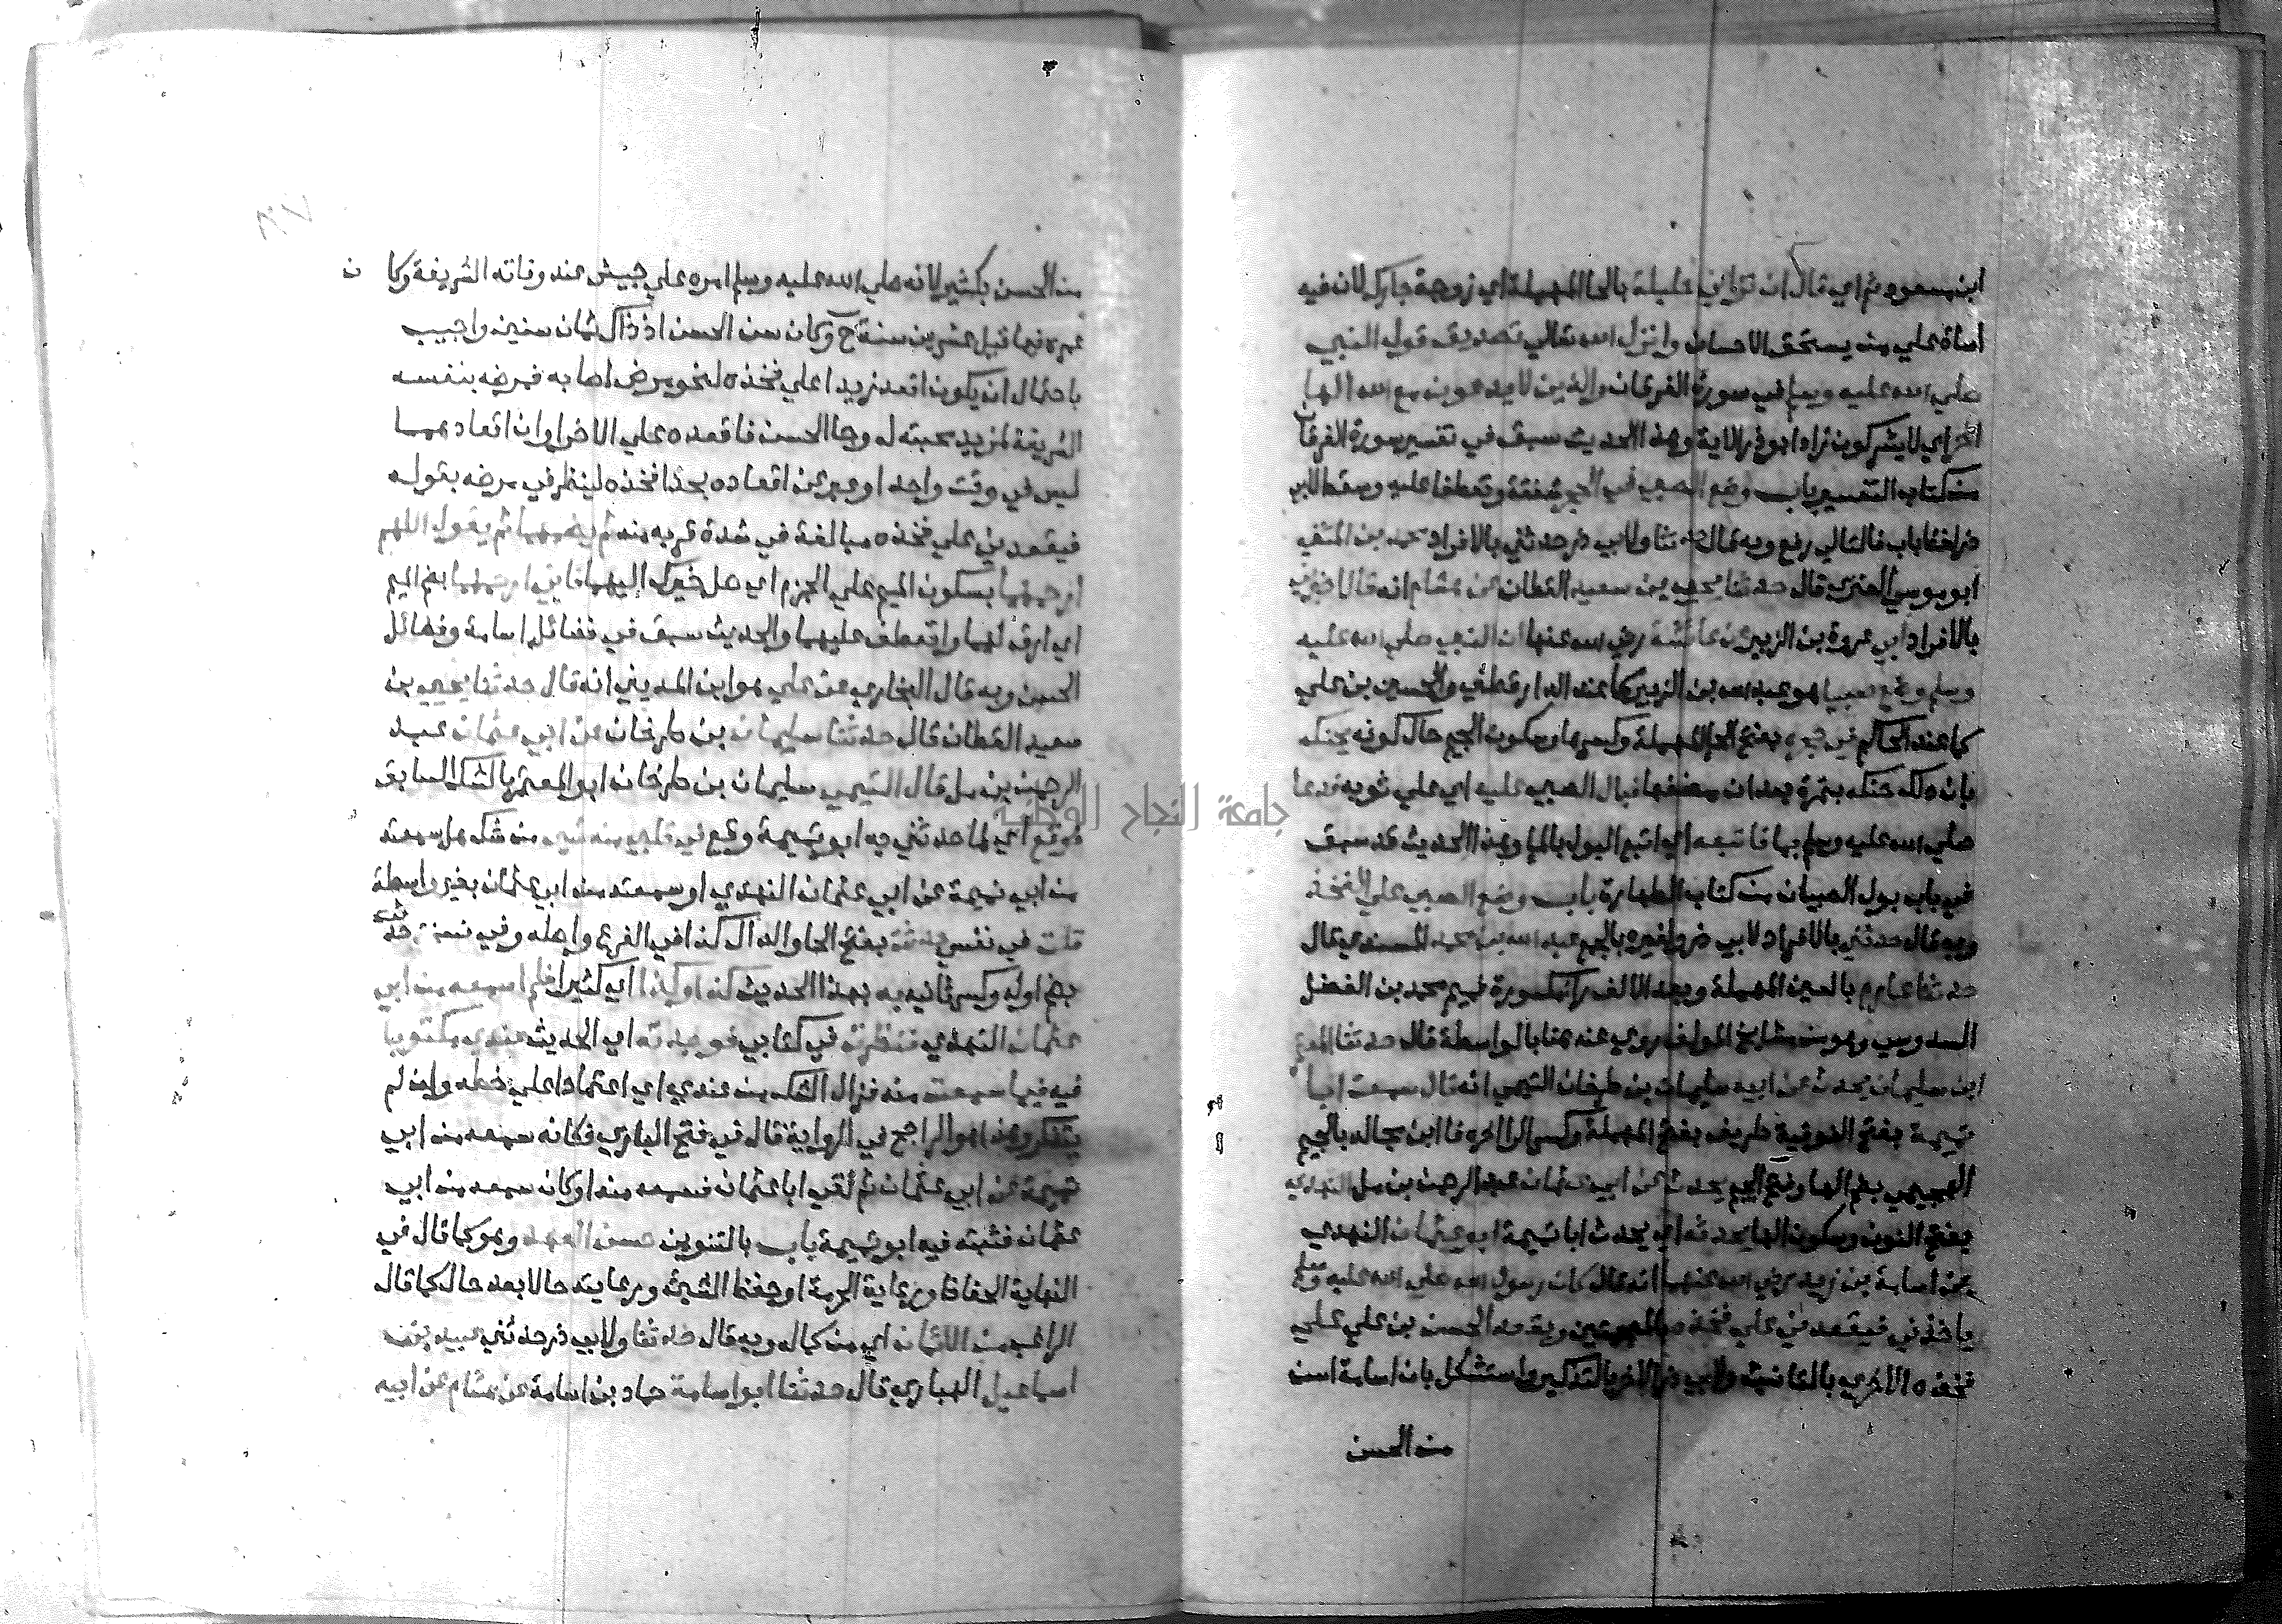 ابن مسعود ثم اي قال ان تزاني حليلة بالحا المهملة اي زوجة جارك لان فيه
اساة علي من يستحق الاحسان وانزل الله تعالي تصديق قول النبي
صلي الله عليه وسلم في سورة الفرقان والذين لا يدعون مع الله الها
اخر اي لا يشركون زاد ابو ذر الاية وهذا الحديث سبق في تفسير سورة الفرقان
من كتاب التفسير باب وضع الصبي في الحجر شفقة وتعطفا عليه وسقط لابي
ذر لفظ باب فالتالي رفع وبه قال حدثنا ولابي ذر حدثني بالافراد محمد بن المثني
ابو موسي العنزي قال حدثنا يحيي بن سعيد القطان عن هشام انه قال اخبرني
بالافراد ابي عروة بن الزبير عن عائشة رضي الله عنها ان النبي صلي الله عليه
وسلم وضع صبيا هو عبد الله بن الزبير كما عند الدارقطني والحسين بن علي
كما عند الحاكم في حجره بفتح الحا المهملة وكسرها وسكون الجيم حال كونه يحنكه
بان دلك حنكه بتمرة بعد ان مضغها فبال الصبي عليه اي علي ثوبه فدعا
صلي الله عليه وسلم بما فاتبعه اي اتبع البول بالما وهذا الحديث قد سبق
في باب بول الصبيان من كتاب الطهارة باب وضع الصبي علي الفخذ
وبه قال حدثني بالافراد لابي ذر ولغيره بالجمع عبد الله بن محمد المسندي قال
حدثنا عارم بالعين المهملة وبعد الالف را مكسورة فميم محمد بن الفضل
السدوسي وهو من مشايخ المولف روي عنه هنا بالواسطة قال حدثنا المعتمر
ابن سليمان يحدث عن ابيه سليمان بن طرخان التيمي انه قال سمعت ابا
تميمة بفتح الفوقية طريف بفتح المهملة وكسر الرا اخره فا ابن مجالد بالجيم
الهجيمي بضم الها وفتح الجيم يحدث عن ابي عثمان عبد الرحمن بن مل النهدي
بفتح النون وسكون الها يحدثه اي يحدث ابا تميمة ابو عثمان النهدي
عن اسامة بن زيد رضي الله عنهما انه قال كان رسول الله صلي الله عليه وسلم
ياخذني فيقعدني علي فخذه بالمعجمتين ويقعد الحسن بن علي علي
فخذه الاخري بالتانيث ولابي ذر الاخر بالتذكير واستشكل بان اسامة اسن
من الحسن
من الحسن بكثير لانه صلي الله عليه وسلم امره علي جيش عند وفاته الشريفة وكان
عمره فيما قيل عشرين سنة ح وكان سن الحسن اذ ذاك ثمان سنين واجيب
باحتمال ان يكون اقعد زيدا علي فخذه لنحو مرض اصابه فمرضه بنفسه
الشريفة لمزيد محبته له وجا الحسن فاقعده علي الاخر او ان اقعادهما
ليس في وقت واحد او عبر عن اقعاده بحذا فخذه لينظر في مرضه بقوله
فيقعدني علي فخذه مبالغة في شدة قربه منه ثم يضمهما ثم يقول اللهم
ارحمهما بسكون الميم علي الجزم اي صل خيرك اليهما فاني ارحمهما بضم الميم
اي ارق لهما واتعطف عليهما والحديث سبق في فضائل اسامة وفضائل
الحسن وبه قال البخاري عن علي هو ابن المديني انه قال حدثنا يحيي بن
سعيد القطان قال حدثنا سليمان بن طرخان عن ابي عثمان عبد
الرحمن بن مل قال التيمي سليمان بن طرخان ابو المعتمر بالشك السابق
فوقع اي لما حدثني به ابو تميمة وقع في قلبي منه شي من شك هل سمعته
من ابي تميمة عن ابي عثمان النهدي او سمعته من ابي عثمان بغير واسطة
قلت في نفسي حدثت بفتح الحا والدال كذا في الفرع واصله وفي نسخة حدثت
بضم اوله وكسر ثانيه به بهذا الحديث كذا وكذا اي كثيرا فلم اسمعه من ابي
عثمان النهدي فنظرت في كتابي فوجدته اي الحديث عندي مكتوبا
فيه فيما سمعت منه فزال الشك من عندي اي اعتمادا علي خطه وان لم
يتذكر وهذا هو الراجح في الرواية قال في فتح الباري فكانه سمعه من ابي
تميمة عن ابي عثمان ثم لقي ابا عثمان فسمعه منه او كان سمعه من ابي
عثمان فثبته فيه ابو تميمة باب بالتنوين حسن العهد وهو كما قال في
النهاية الحفاظ ورعاية الحرمة او حفظ الشي ومراعايته حالا بعد حال كما قال
الراغب من الائمان اي من كمال وبه قال حدثنا ولابي ذر حدثني عبيد بن
اسماعيل الهباري قال حدثنا ابو اسامة حماد بن اسامة عن هشام عن ابيه
جامعة النجاح الوطنية